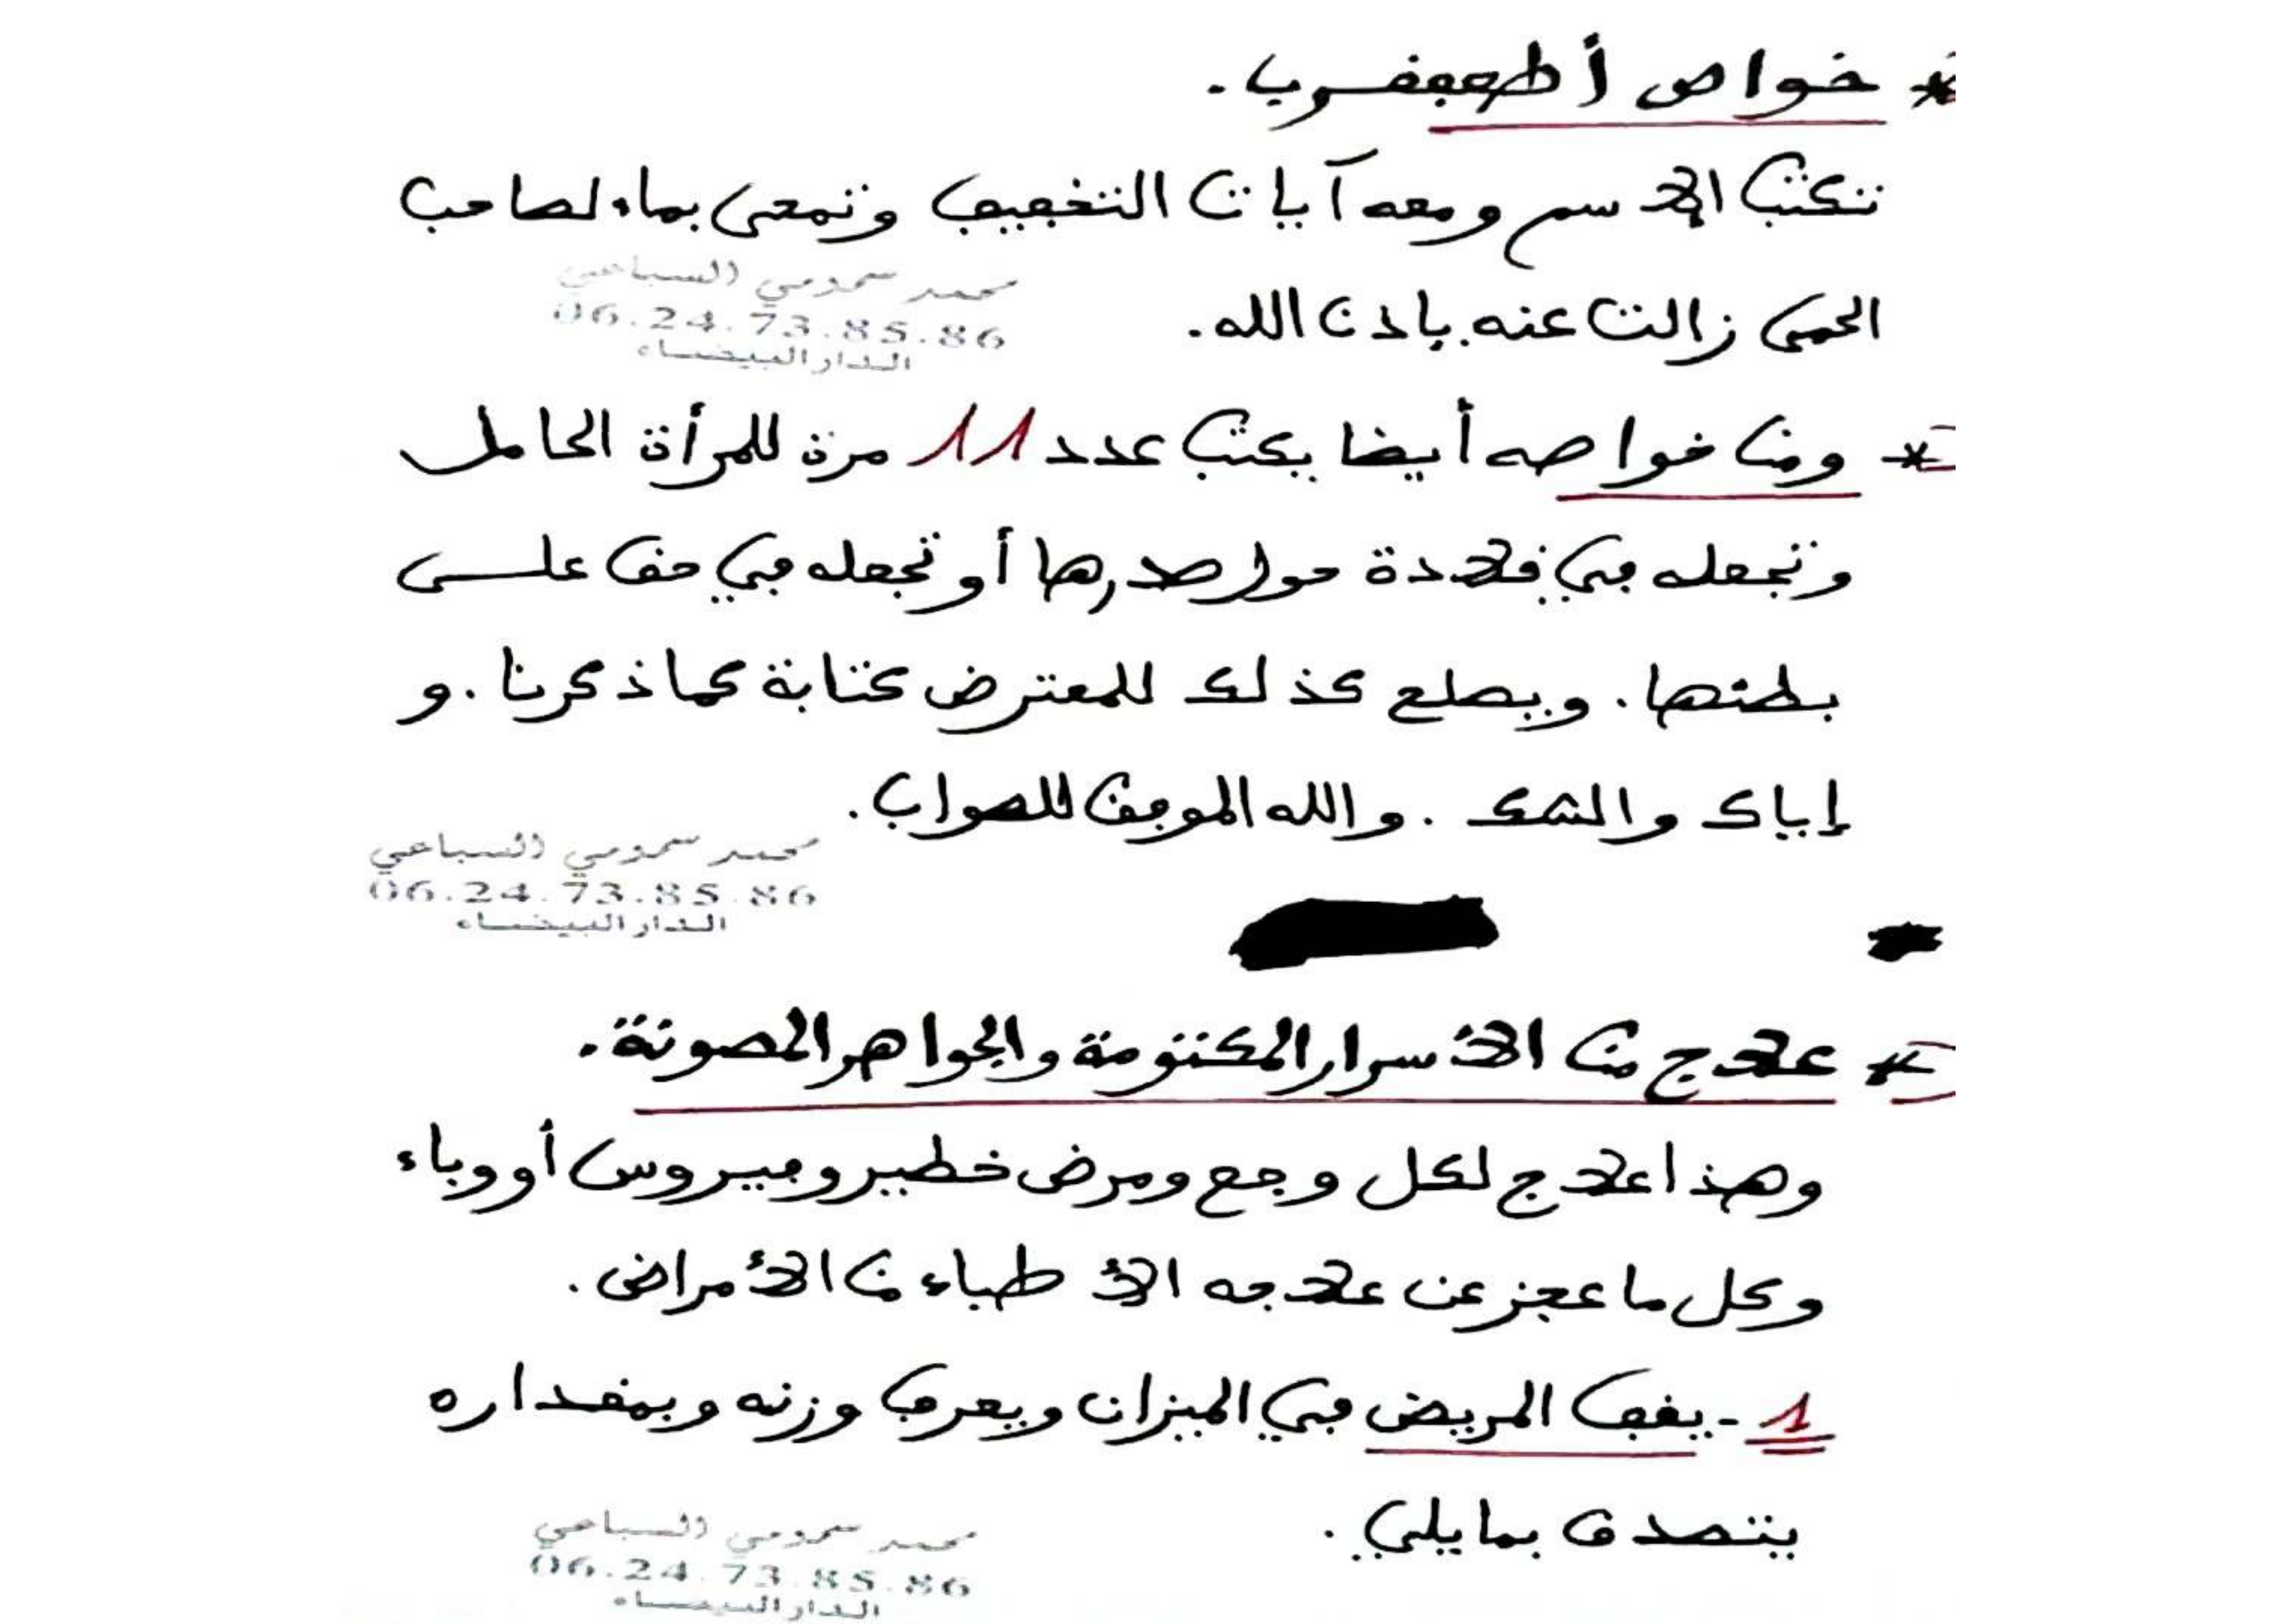 * خواص أطهعفرب.
تكتب الاسم ومعه آيات التخفيف وتمحى بماء لصاحب
الحمى زالت عنه بإذن الله.
محمد سمومي السباعي
06.24.73.85.86
الدار البيضاء
* ومن خواصه أيضا يكتب عدد 11 مرة للمرأة الحامل
وتجعله في قلادة حول صدرها أو تجعله في حق على
بطنها. ويصلح كذلك للمعترض كتابة كما ذكرنا. و
إياك والشك. والله الموفق للصواب.
محمد سمومي السباعي
06.24.73.85.86
الدار البيضاء
* علاج من الأسرار المكتومة والجواهر المصونة.
وهذا علاج لكل وجع ومرض خطير وفيروس أو وباء
وكل ما عجز عن علاجه الأطباء من الأمراض.
1 - يقف المريض في الميزان ويعرف وزنه وبمقداره
يتصدق بما يلي.
محمد سمومي السباعي
06.24.73.85.86
الدار البيضاء